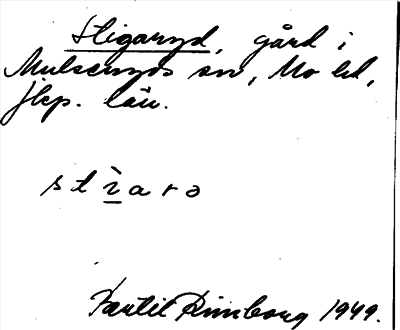 Stigaryd, gård i
Mulseryds sn, Mo hd,
Jkp. län.
s t ì a r ə
Bertil Rimborg 1949.